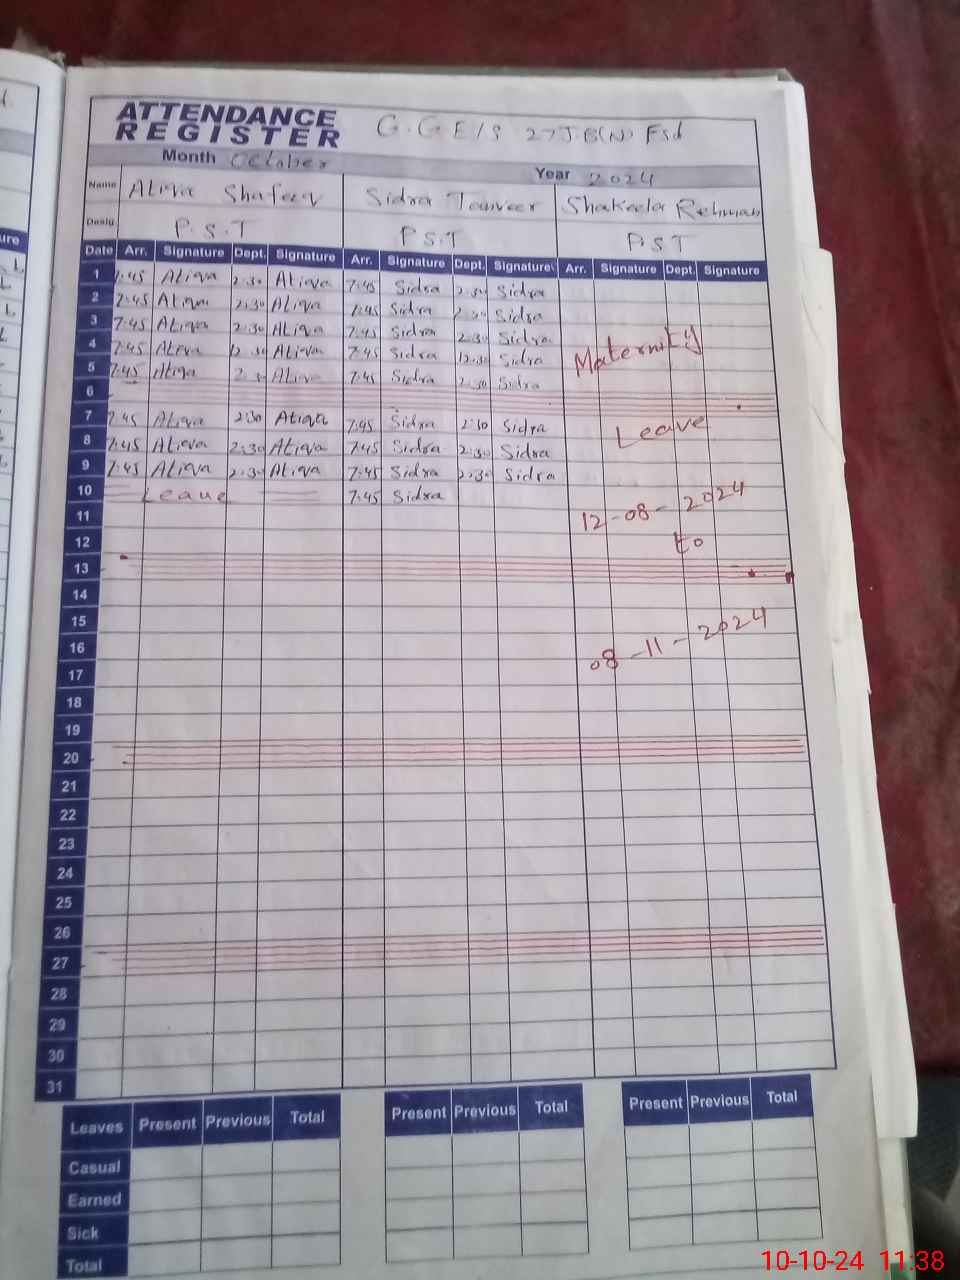 ATTENDANCE
REGISTER
G.G.E/S 27J.B(N) Fsd
Month October
Year 2024
Name Atiqa Shafeeq Sidra Tanveer Shakeela Rehman
Desig P.S.T P.S.T P.S.T
Date Arr. Signature Dept. Signature Arr. Signature Dept. Signature Arr. Signature Dept. Signature
1 7:45 Atiqa 2:30 Atiqa 7:45 Sidra 2:30 Sidra
2 7:45 Atiqa 2:30 Atiqa 7:45 Sidra 2:30 Sidra
3 7:45 Atiqa 2:30 Atiqa 7:45 Sidra 2:30 Sidra
4 7:45 Atiqa 12:30 Atiqa 7:45 Sidra 12:30 Sidra
Maternity
5 7:45 Atiqa 2:30 Atiqa 7:45 Sidra 2:30 Sidra
6
7 7:45 Atiqa 2:30 Atiqa 7:45 Sidra 2:30 Sidra
Leave
8 7:45 Atiqa 2:30 Atiqa 7:45 Sidra 2:30 Sidra
9 7:45 Atiqa 2:30 Atiqa 7:45 Sidra 2:30 Sidra
10 Leave 7:45 Sidra
11 12-08-2024
12 to
13
14
15
16 08-11-2024
17
18
19
20
21
22
23
24
25
26
27
28
29
30
31
Leaves Present Previous Total Present Previous Total Present Previous Total
Casual
Earned
Sick
Total
10-10-24 11:38